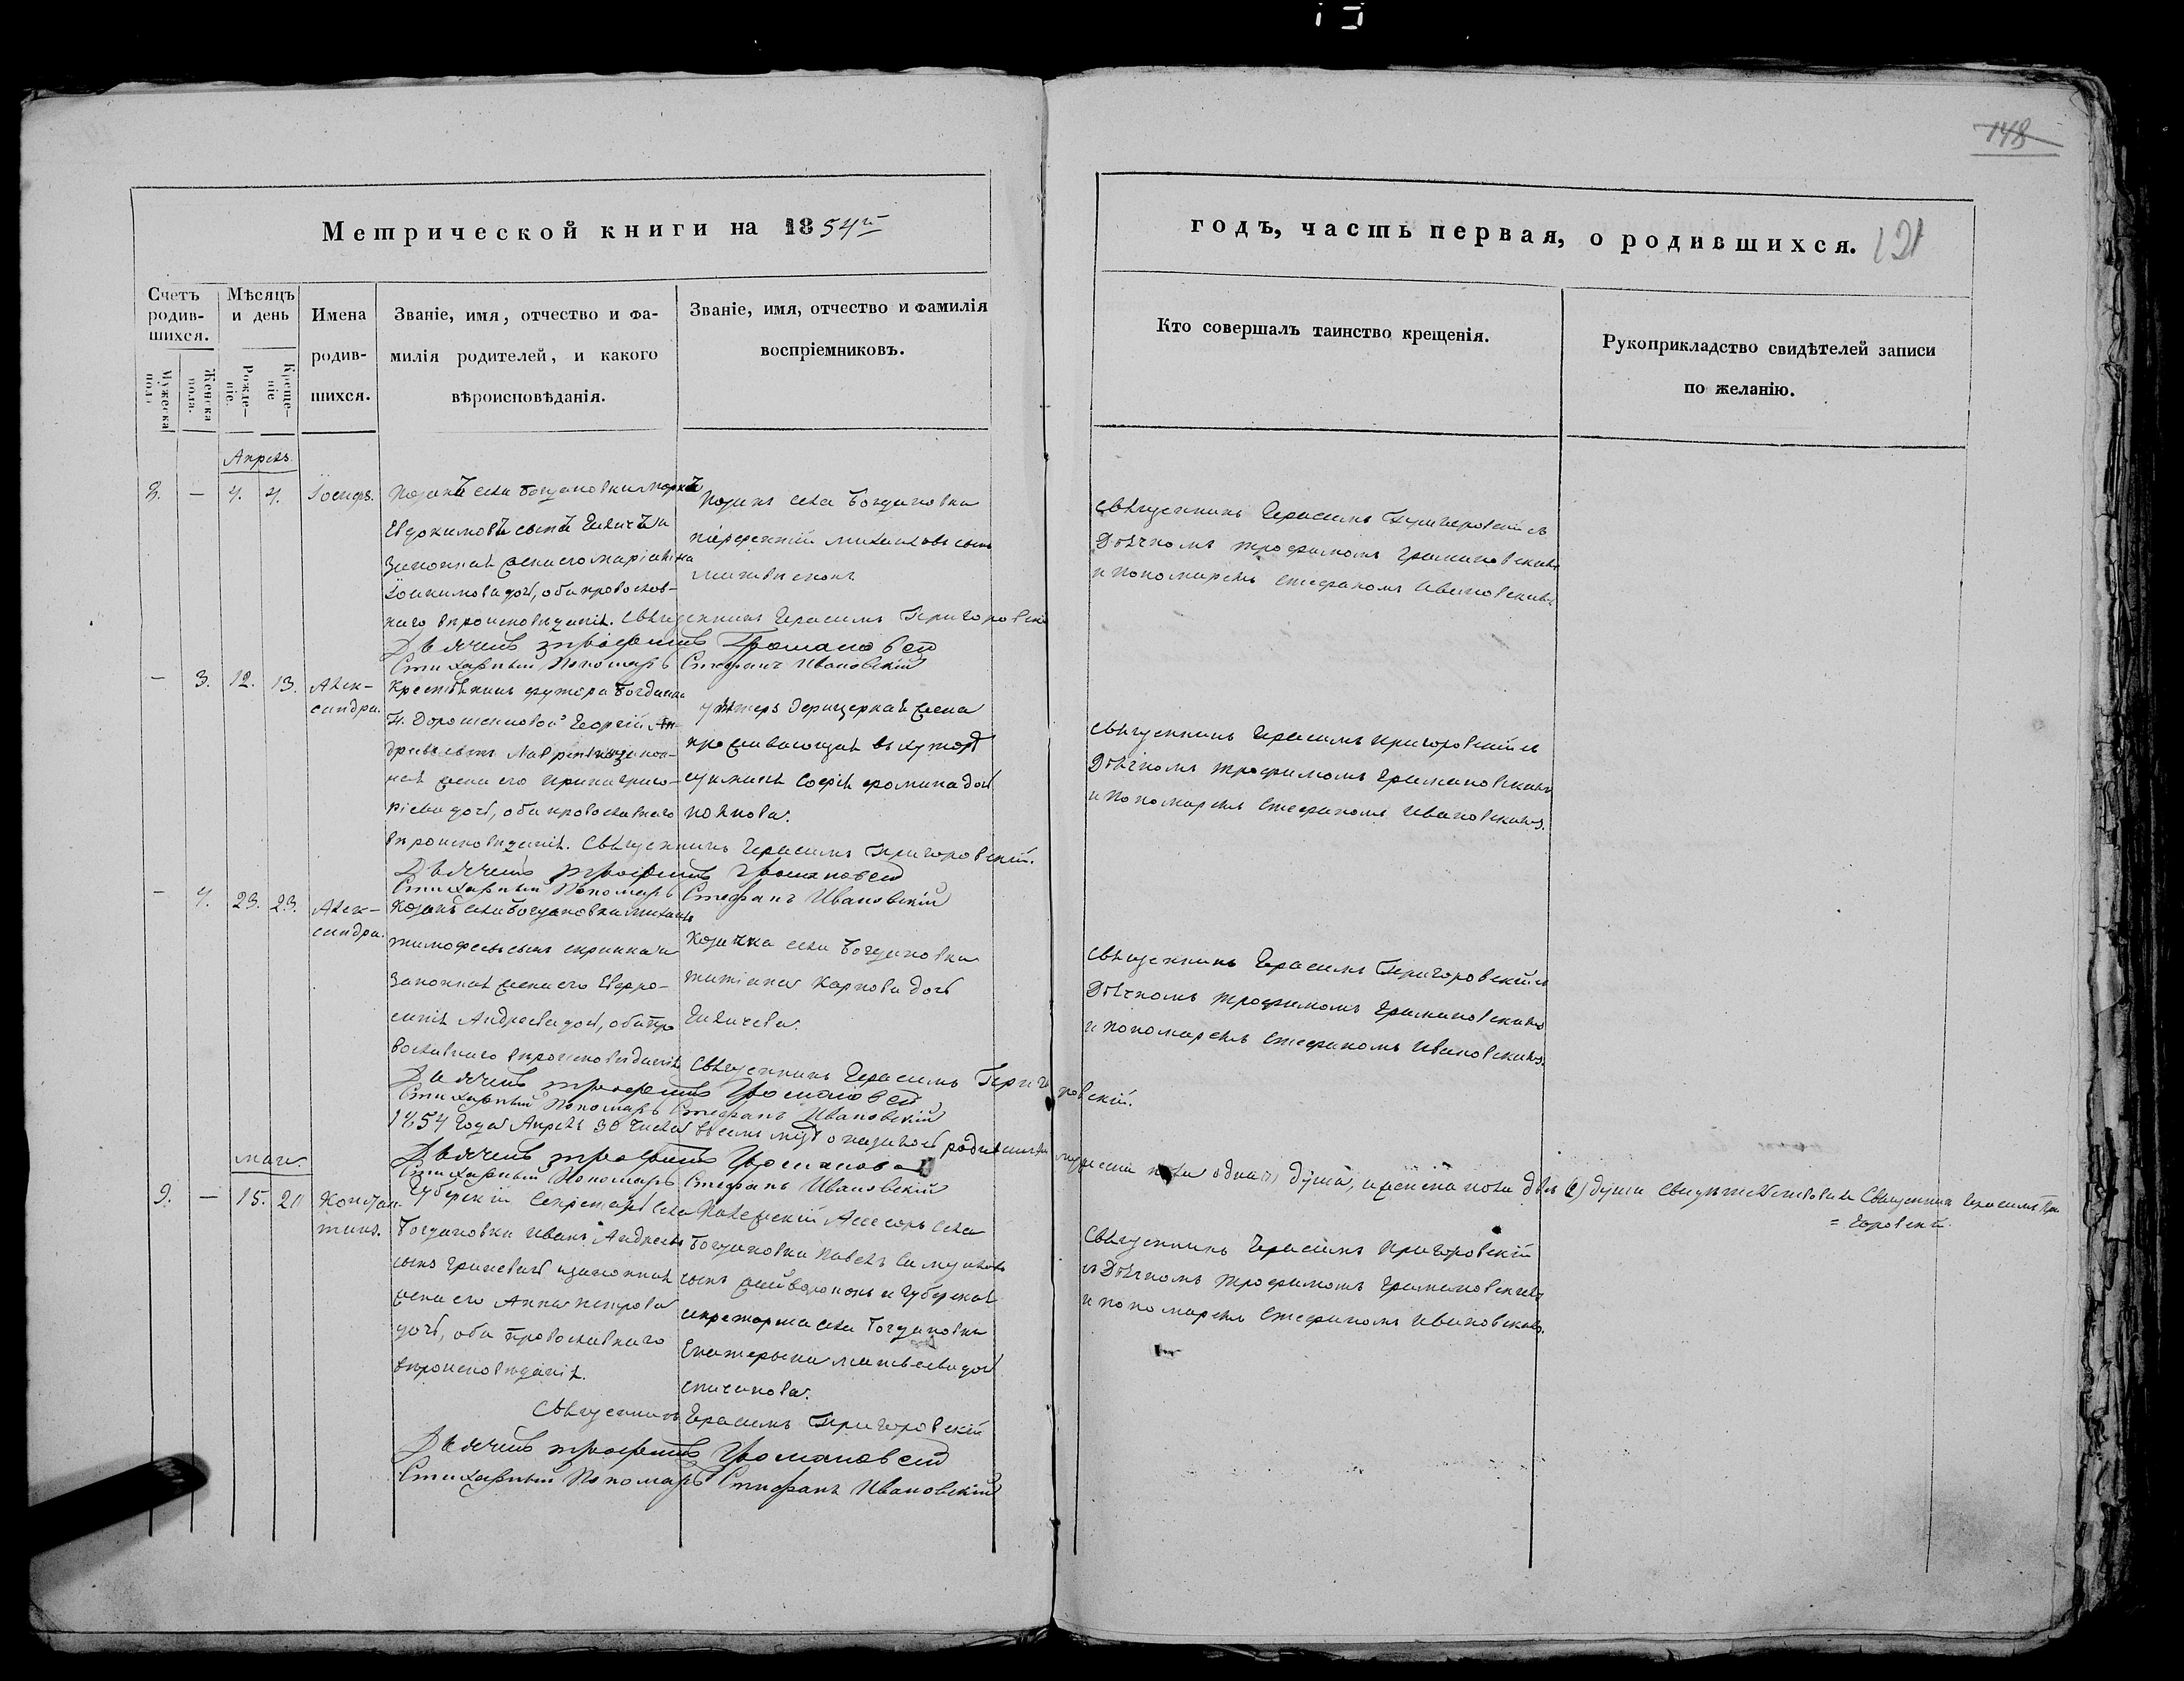 148
Метрической книги на 1854й
годъ, часть первая, о родившихся. 121
Счетъ родив-шихся.
Мужеска пола
Женска пола.
Мѣсяцъ и день
Рожде-ніе.
Креще-ніе
Имена
родив-
шихся.
Званіе, имя, отчество и фа-
милія родителей, и какого
вѣроисповѣданія.
Званіе, имя, отчество и фамилія
воспріемниковъ.
Кто совершалъ таинство крещенія.
Рукоприкладство свидѣтелей записи
по желанію.
Апрель.
8. — 4. 4. Іосифъ.
Козакъ села Богдановки
Евдокимовъ сынъ и
законная жена его Марія
Іоакимова дочь, оба православ-
наго вероисповеданія. Священникъ Герасимъ Григоровскій
Дьячекъ Трофимъ Громановскій
Стихарный Пономарь Стефанъ Ивановскій
Козакъ села Богдановки
Михаиловъ сынъ
Священникъ Герасимъ Григоровскій съ
Дьячкомъ Трофимомъ Громановскимъ
и Пономаремъ Стефаномъ Ивановскимъ
— 3. 12. 13. Алек-
сандра.
Крестьянинъ хутора Богдана
Георгій Ан-
дреевъ сынъ
ная жена его Ирина Григо-
ріева дочь, оба православнаго
вероисповеданія. Священникъ Герасимъ Григоровскій.
Дьячекъ Трофимъ Громановскій
Стихарный Пономарь Стефанъ Ивановскій
Унтеръ Офицерная жена
проживающая въ хуторе
Софія Фомина дочь
Священникъ Герасимъ Григоровскій съ
Дьячкомъ Трофимомъ Громановскимъ
и Пономаремъ Стефаномъ Ивановскимъ.
— 4. 23. 23. Алек-
сандра.
Козакъ села Богдановки Михаилъ
Тимофеевъ сынъ и
законная жена его Евфро-
синія Андреева дочь, оба пра-
вославнаго вероисповеданія
Священникъ Герасимъ Григоровскій.
Дьячекъ Трофимъ Громановскій
Стихарный Пономарь Стефанъ Ивановскій
Козачка села Богдановки
Татіана Карпова дочь
Священникъ Герасимъ Григоровскій съ
Дьячкомъ Трофимомъ Громановскимъ
и Пономаремъ Стефаномъ Ивановскимъ.
1854 года Апреля 30 числа въ семъ оказалось родившихся мужеска пола одна (1) душа, а женска пола две (2) души Свидетельствовалъ Священникъ Герасимъ Гри-
=горовскій.
Дьячекъ Трофимъ Громановскій
Стихарный Пономарь Стефанъ Ивановскій
маи.
9. — 15. 21 Констан-
тинъ.
Губерскій Секретарь села
Богдановки Иванъ Андреевъ
сынъ и законная
жена его Анна Петрова
дочь, оба православнаго
вероисповеданія.
Священникъ Герасимъ Григоровскій
Дьячекъ Трофимъ Громановскій
Стихарный Пономарь Стефанъ Ивановскій
Асесоръ села
Богдановки Павелъ Самуиловъ
сынъ и Губерская
секретарша села Богдановки
Екатерина Матвеева дочь
Священникъ Герасимъ Григоровскій
съ Дьячкомъ Трофимомъ Громановскимъ
и пономаремъ Стефаномъ Ивановскимъ.